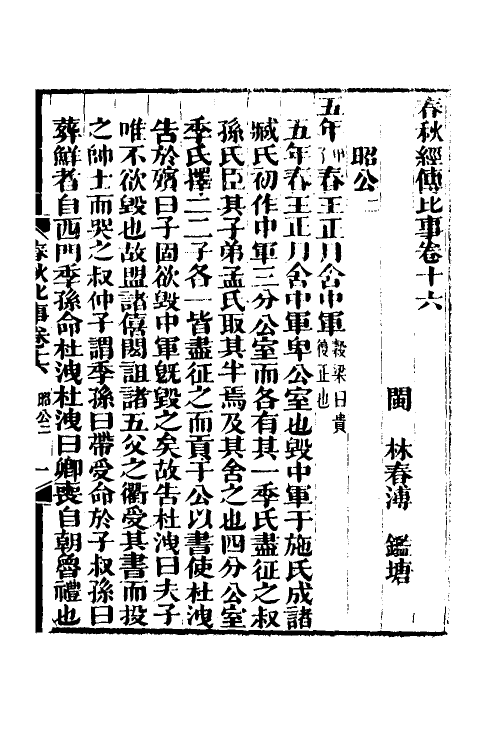 春秋經傳比事卷十六
閩 林春溥 鑑塘
昭公二
五年 春王正月舍中軍 穀梁曰貴復正也
五年春王正月舍中軍卑公室也毀中軍于施氏成諸
臧氏初作中軍三分公室而各有其一季氏盡征之叔
孫氏臣其子弟孟氏取其半焉及其舍之也四分公室
季氏擇二二子各一皆盡征之而貢于公以書使杜洩
告於殯曰子固欲毀中軍旣毀之矣故告杜洩曰夫子
唯不欲毀也故盟諸僖閎詛諸五父之衢受其書而投
之帥士而哭之叔仲子謂季孫曰帶受命於子叔孫曰
葬鮮者自西門季孫命杜洩杜洩曰卿喪自朝魯禮也
春秋比事卷十六 昭公二 一